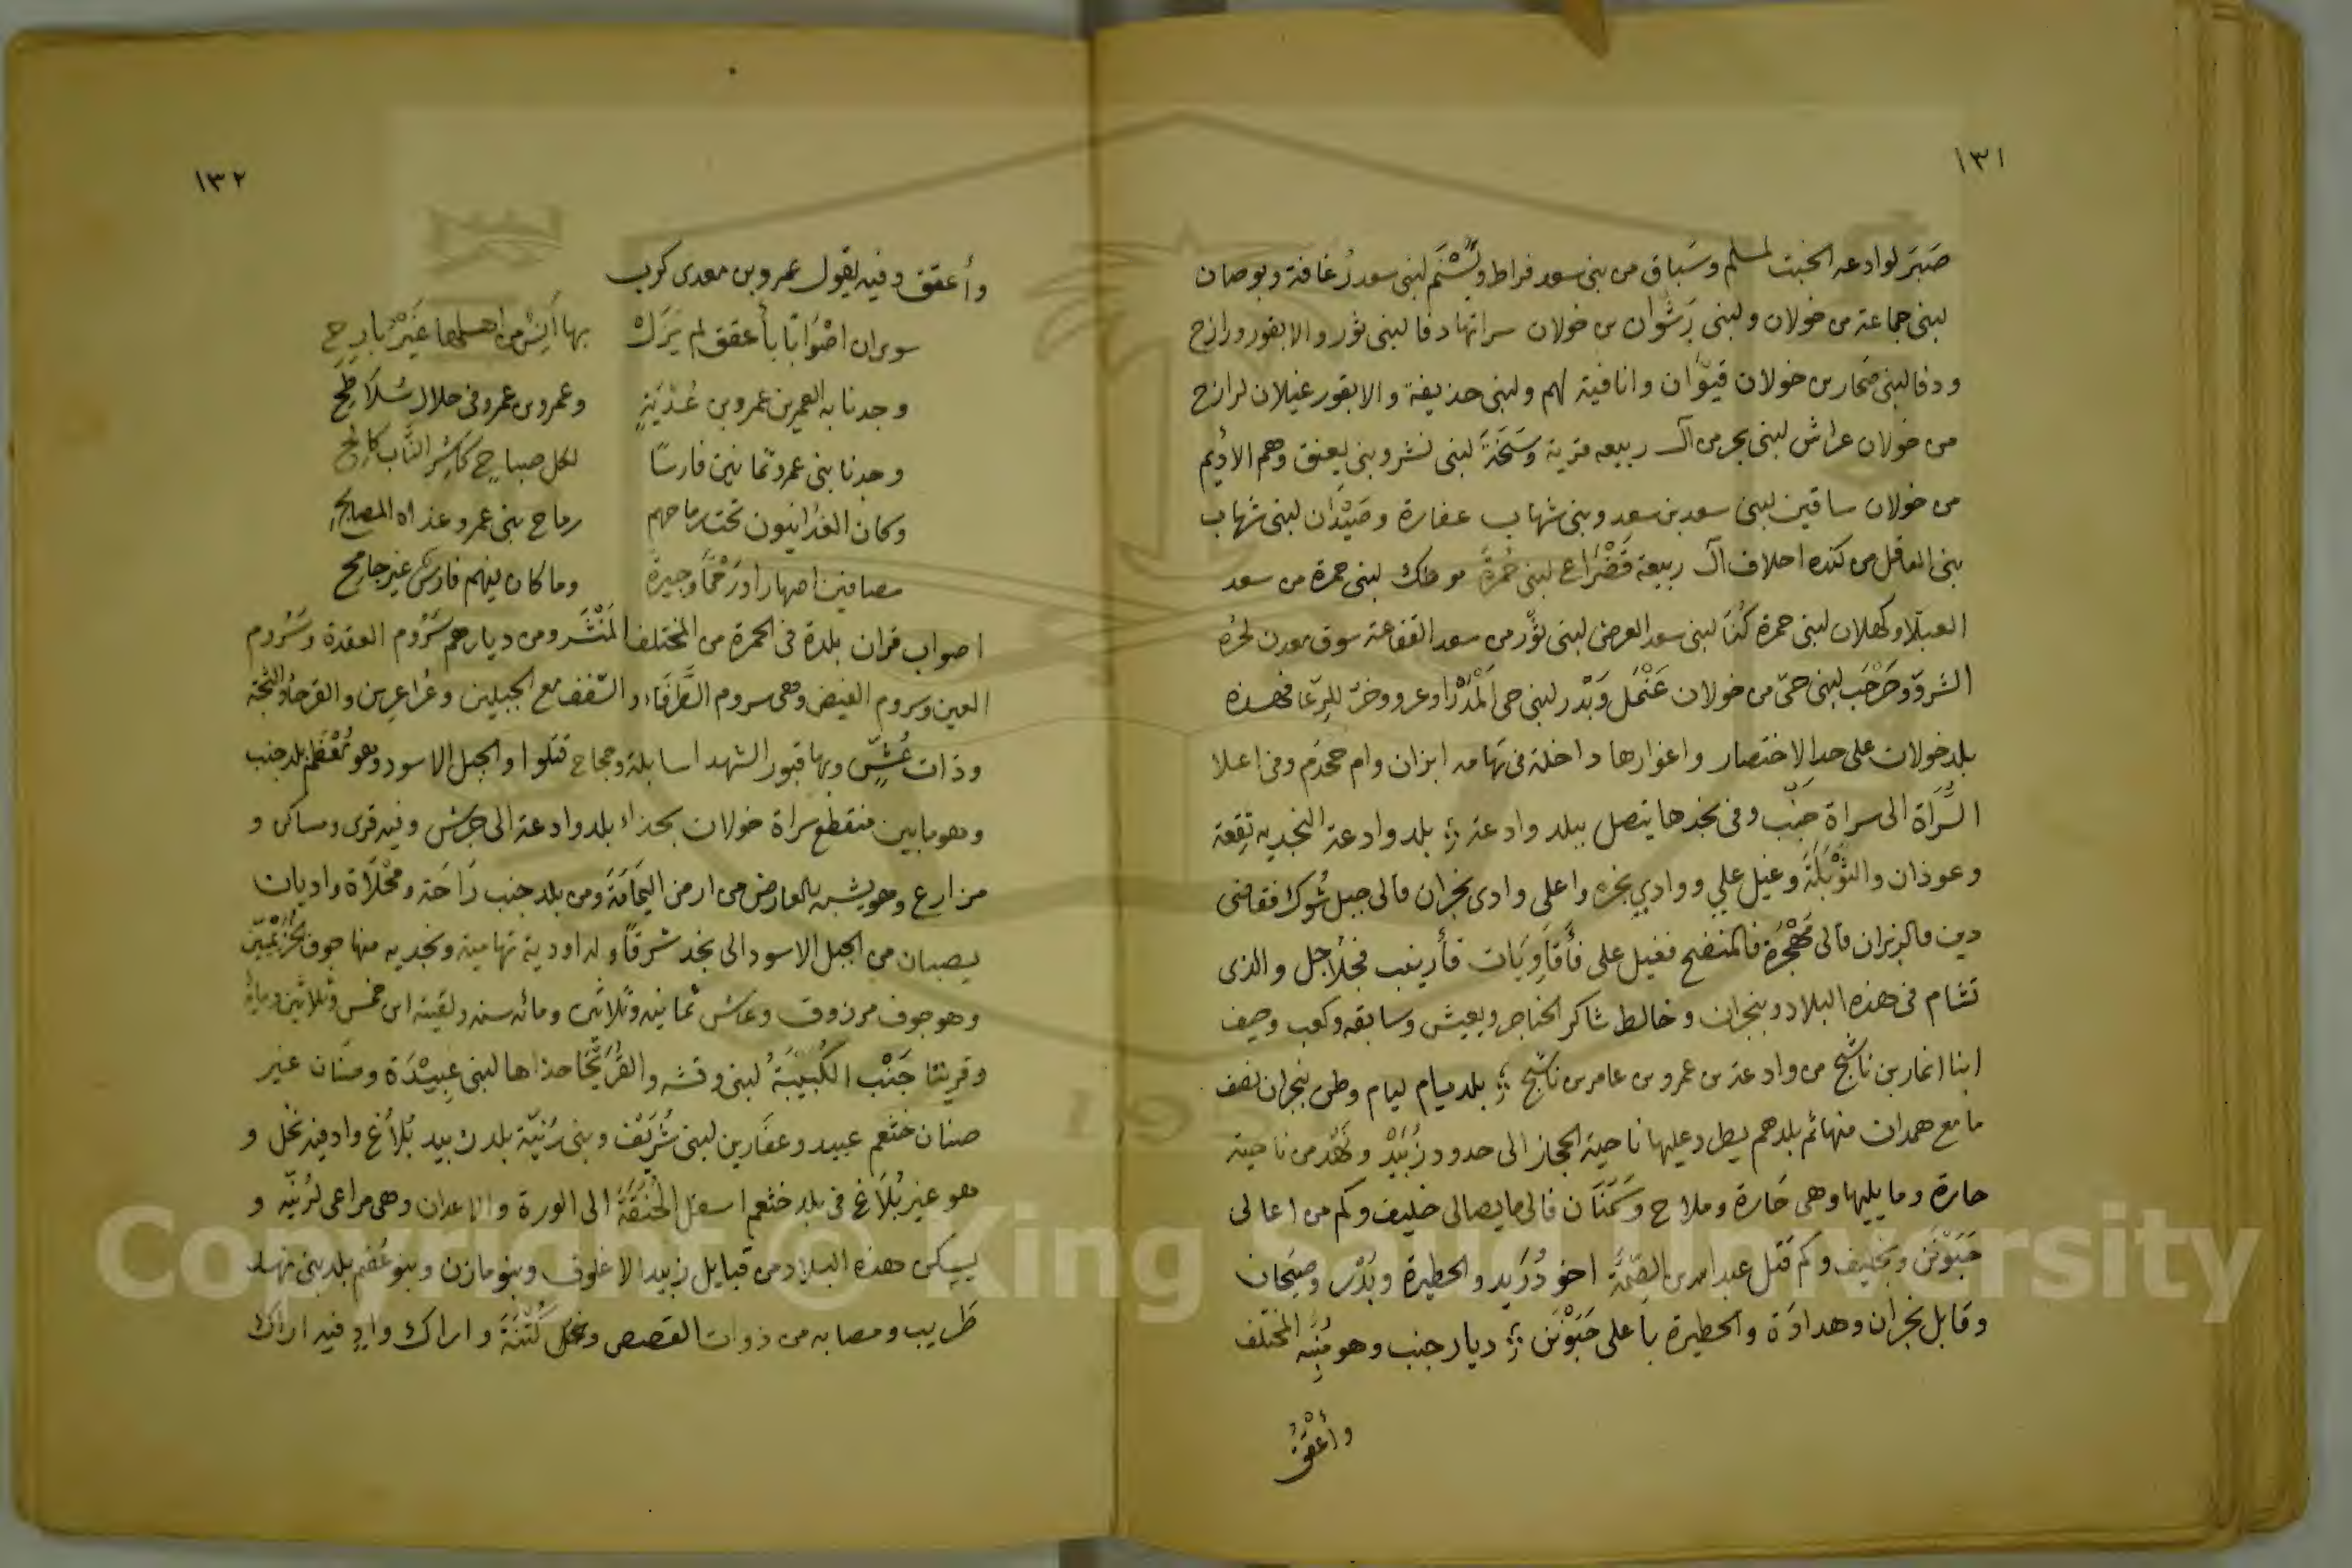 ١٣١
صَبَر لوادعه الخبت لمسلم وسَباق من بنى سعد فراط ويَسْنَم لبنى سعد رُغافة وبوصان
لبنى جماعة من خولان ولبنى رَشْوان من خولان سراتها دفا لبنى ثور والابقور ورازح
ودفا لبنى صُحار بن خولان قيْوَان وانافية لهم ولبنى حذيفة والابقور غيلان لرازح
من خولان عراش لبنى بحر من آل ربيعه قرية وسَحَنَة لبنى نشر وبنى يعنق وهم الأديم
من خولان ساقين لبنى سعد بن سعد وبنى شهاب عفارة وصَيْدَان لبنى شهاب
بنى العاقل من كنده احلاف آل ربيعة قَضْرَاع لبنى حُمرَة موطك لبنى حمرة من سعد
العبلا وكهلان لبنى حمرة كُنَا لبنى سعد العرض لبنى ثَوْر من سعد القفاعة سوق معدن لحُره
الشرو وحَرْجَب لبنى حىّ من خولان عَنْمَل وَبَدْر لبنى حى المَدْرَا وعرو وخرّ للبِرعَا فهذه
بلد خولان على حد الاختصار واغوارها داخلة فى تهامه ابزان وام جحدَم وفى اعلا
السَّرَاة الى سراة جَنْب وفى نجدها يتصل ببلد وادعة بلد وادعة النجديه بَقِعة
وعوذان والثوَيْلَة وغيل علي ووادي نجره واعلى وادى نجران فالى جبل شُوك فقاضى
دين فالزبران فالى مَهْجَرَة فالمنضح فغيل على فأقاوِيَات فأرينب فجُلاجل والذى
تشام فى هذه البلاد وبنجران وخالط شاكر الخناجر وبعيش وسابقه وكعب وحيف
ابنا انمار بن ناشج من وادعة بن عمرو بن عامر بن ناشج بلد يام ليام وطن بنجران نصف
ما مع همدان منها ثم بلدهم يطرد عليها ناحية الحجاز الى حدود زُبَيْد ونَهْد من ناحية
حارة وما يليها وهى حَارة وملاح وسَمْنَان فالى ما يصالى خليف وكم من اعالى
حَبَوْنَن وبخليف وكم قتل عبد الله بن الصِّمَّة اخو دُرَيد والحظيرة وبَدْر وصَيْحان
وقابل نجران وهدادَة والحظيرة بأعلى حَبَوْنَن ديار جنب وهو مُنَبِّه المختلف
وأعْقَق
١٣٢
وأعقق وفيه يقول عمرو بن معدى كرب
سوران اصْوَاتًا بأعقق لم يَزَلْ بها أَنِيسٌ من اهلها غَيْرُ بارِحِ
وجدنا به العمر بن عمرو بن عُدْيَةٍ وعمرو بن عمرو فى حلال سُلاطِحِ
وجدنا بنى عمرو ثمانين فارسًا لكل صباحٍ كاشِرِ النَّابِ كالِحِ
وكان الغُدَانيون تحت رماحهم رماح بنى عمرو غداه المصابحِ
مصافين اصهارا ورَحْمًا وجيرةً وما كان فيهم فارسٌ غير جامِحِ
اصواب قران بلدة فى الحمرة من المختلف المَنْشَر ومن ديارهم سَرُوم العقدة وسَرُوم
العين وسروم الفيض وهى سروم الطَّرفَاء والسَّقف مع الجبلين وعُراعِرين والقرحاُ والنجة
وذات عُشٍّ وبها قبور الشهدا سابلة وحجاج قتلوا والجبل الاسود وهو مُعْظَم بلد جنب
وهو ما بين منقطع سراة خولان بحذاء بلد وادعة الى جرش وفيه قرى ومساكن و
مزارع وهو يشبه بالعارض من ارض اليَمَامَةَ ومن بلد جنب رَاحَة ومَحْلاَة واديان
يصبان من الجبل الاسود الى نجد شرقًا وله اودية تهامية ونجديه منها جوف الخُزَيْمِيِّين
وهو جوف مرزوق وعاش ثمانيه وثلاثين ومائه سنه ولقيته ابن خمس وثلاثين ومايه
وقريتا جَنْب الكُبَيْبَةُ لبنى وقشه والقُرَيْحَا حذاها لبنى عبيْدَة وصنان غير
صنان خثعم عبيد وعفارين لبنى شُرَيْف وبنى رُنيّة بلد زبيد بُلاغ واد فيه نخل و
هو غير بُلاَغ فى بلد خثعم اسفل الخَنَقَة الى الورة والاعدان وهى مراعى لرُنيّه و
يسكن هذه البلاد من قبايل زبيد الاغلوق وبنو مازن وبنو عُصْم بلد بنى نهد
طَريب ومصابه من ذوات القصص ونخل كُتْنَةَ واراك وادٍ فيه اراك